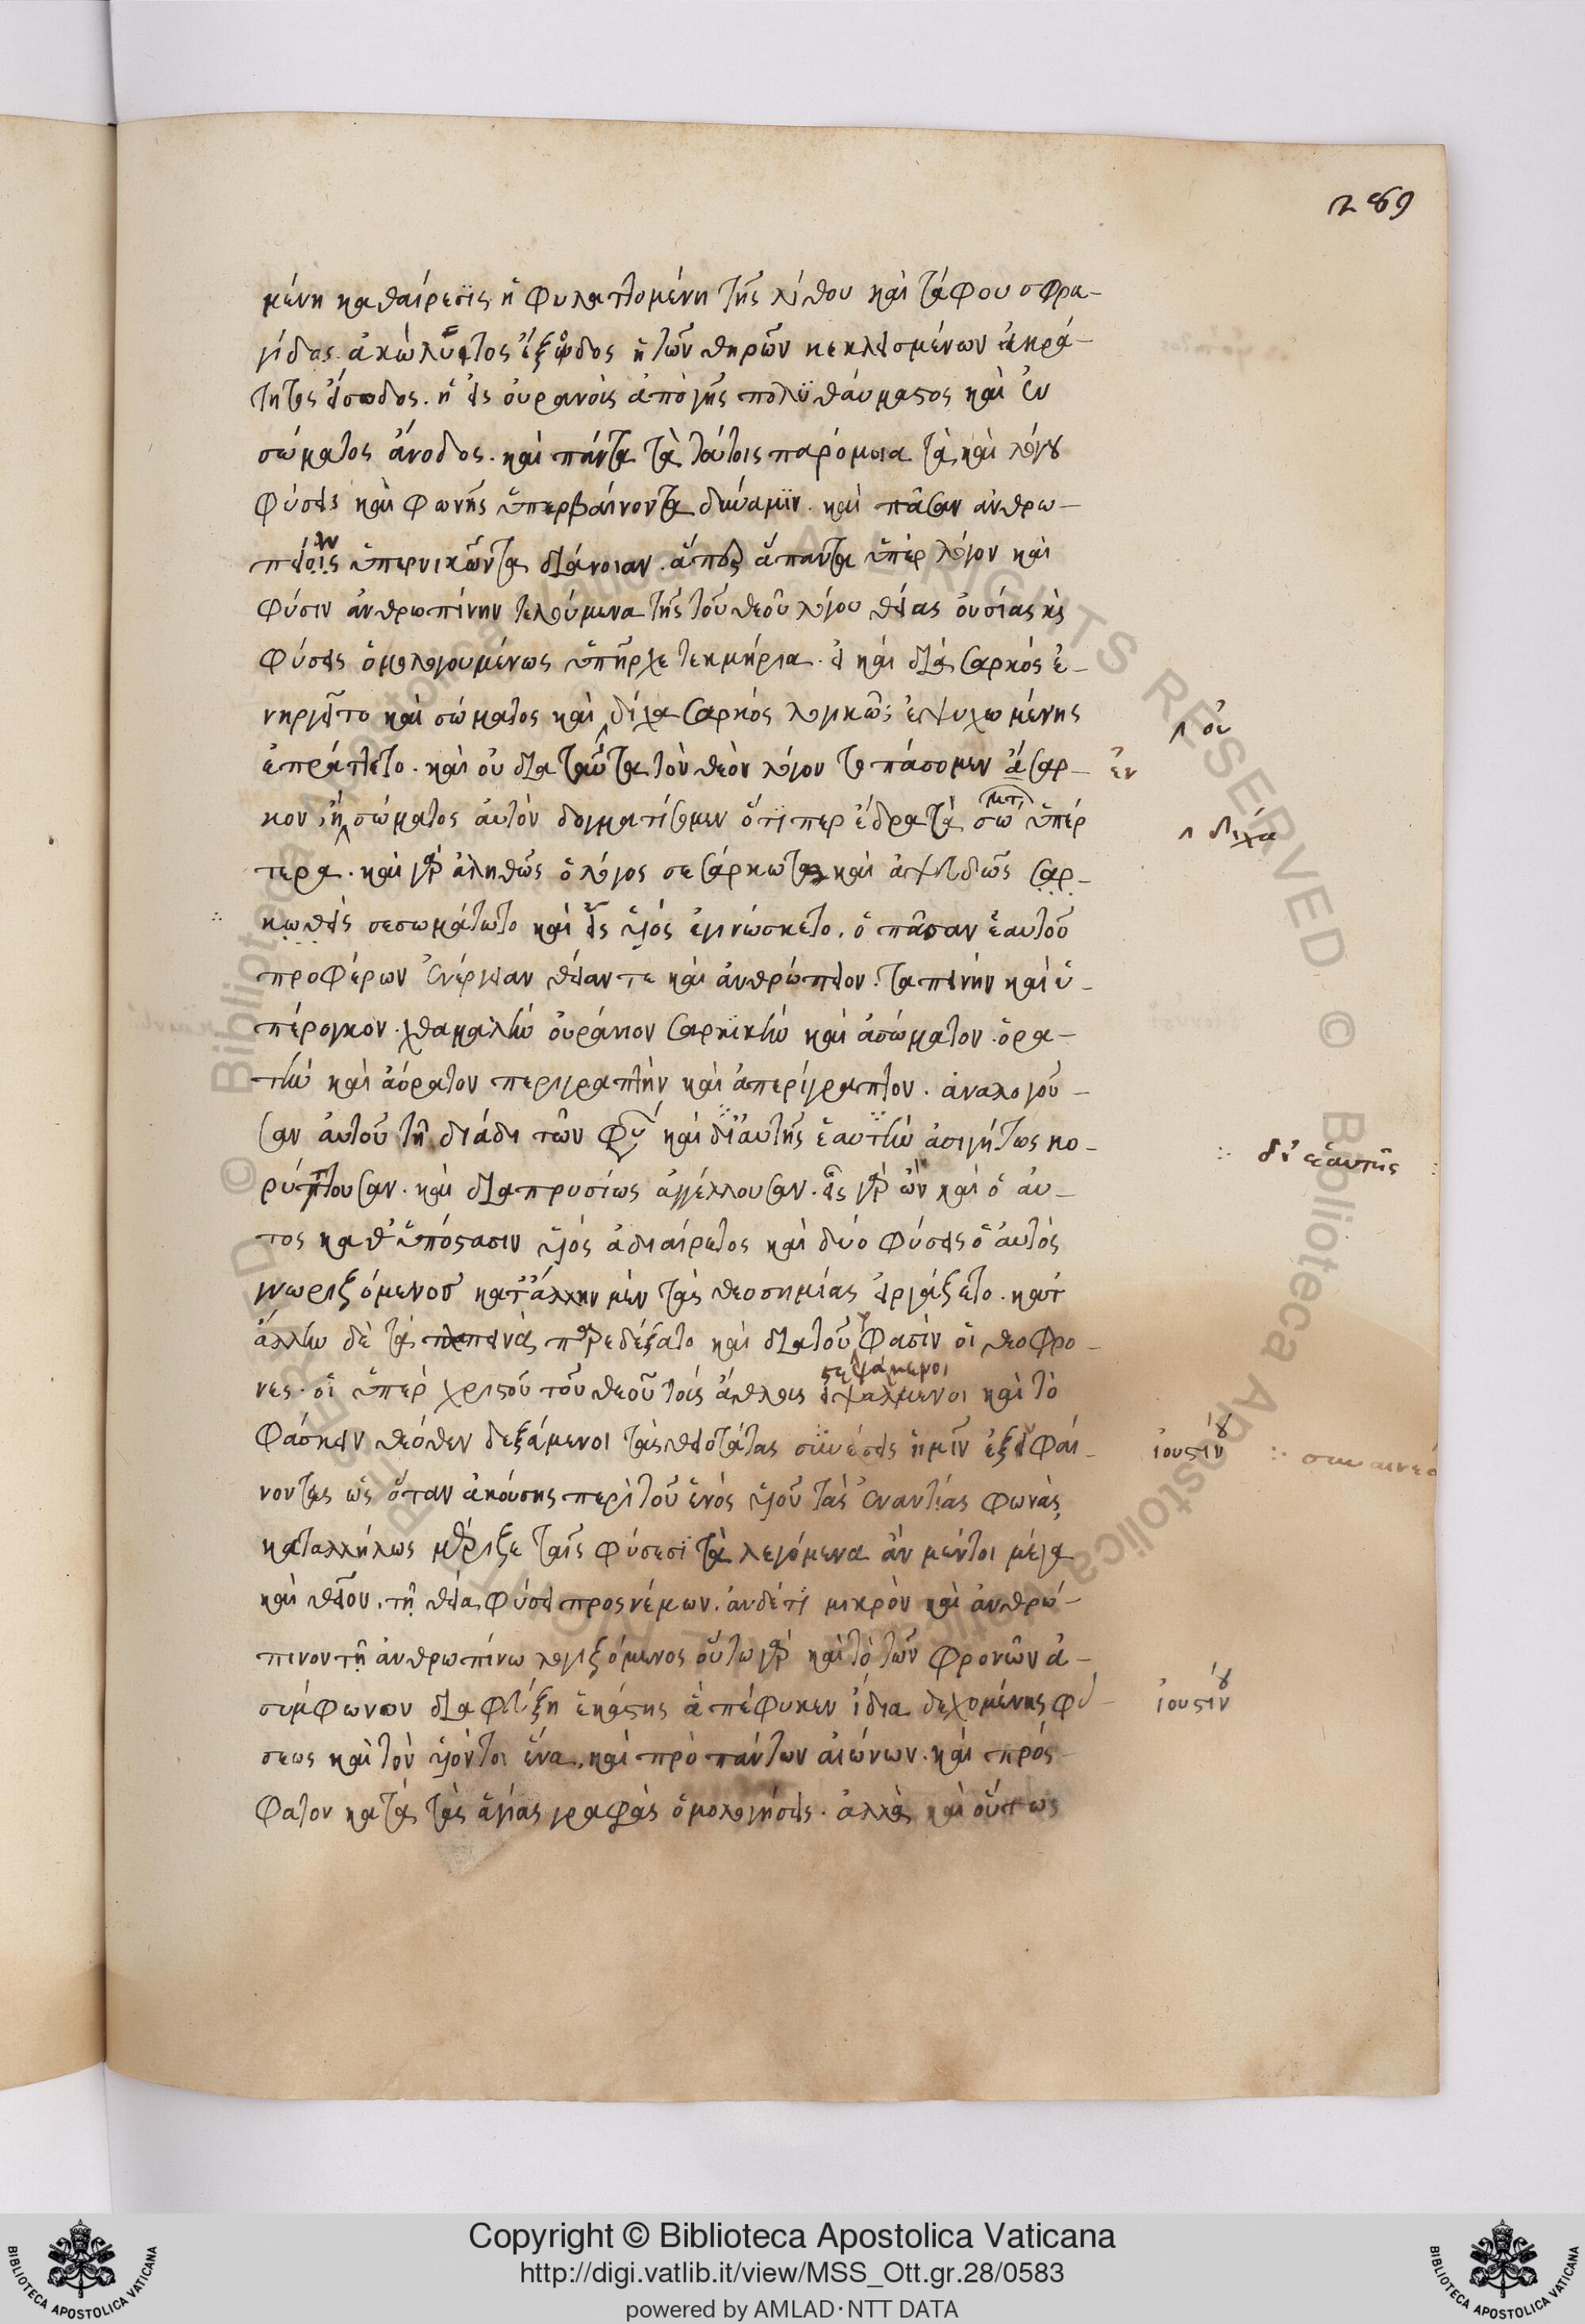 289
μένη καθαίρεσϊς ἡ φυλαττομένη τῆς λίθου καὶ τάφου σφρα-
γίδας. ἀκώλυτος ἔξοδος ἡ τῶν θηρῶν κεκλεισμένων ἀκρά-
τητος εἴσοδος. ἡ εἰς οὐρανοὺς ἀπὸ γῆς πολϋθάυμαστος καὶ ἐν
σώματος ἄνοδος. καὶ πάντα τὰ τούτοις παρόμοια τὰ καὶ λόγου
φύσεις καὶ φωνῆς ὑπερβαίνοντα δύναμϊν. καὶ πᾶσαν ἀνθρω-
πείοις ὑπερνικῶντα διάνοιαν. ἅπερ ἅπαντα ὑπὲρ λόγον καὶ
φύσιν ἀνθρωπίνην τελούμενα τῆς τοῦ θεοῦ λόγου θείας οὐσίας κς
φύσεις ὁμολογουμένως ὑπῆρχε τεκμήρια. εἰ καὶ διὰ σαρκός ἐ-
νηργεῖτο καὶ σώματος καὶ δίχα σαρκός λογικῶς ἐψυχωμένης
^ οὐ
ἐπράττετο. καὶ οὐ δια ταῦτα τὸν θεὸν λόγον το πάσομεν ἄσαρ-
ἐν
κον ἢ σώματος αὐτὸν δογματίσομεν ὅτι περ ἔδρα τὰ σω ὑπέρ
^ δίχα
τερα. καὶ γὰρ ἀληθῶς ὁ λόγος σεσάρκωται καὶ ἀψευδῶς σαρ-
κωθεὶς σεσωμάτωτο καὶ εἷς υἱός ἐγινώσκετο. ὁ πᾶσαν ἑαυτοῦ
προφέρων ἐνέργειαν θείαν τε καὶ ἀνθρώπειον. ταπεινήν καὶ ὑ-
πέρογκον. χθαμαλὴν οὐράνιον σαρκϊκὴν καὶ ἀσώματον. ὁρα-
τὴν καὶ ἀόρατον περιγραπτὴν καὶ ἀπερίγραπτον. ἀναλογοῦ-
σαν αὐτοῦ τῆ διάδι τῶν φυ καὶ δϊ αὐτῆς ἑαυτὴν ἀσιγήτως κη-
δι' ἑαυτῆς
ρύττουσαν. καὶ διαπρυσίως ἀγγέλλουσαν. εἷς γὰρ ὢν καὶ ὁ ἀυ-
τος καθ' ὑπόστασιν υἱός ἀδιαίρετος καὶ δύο φύσεις ὁ αὐτός
γνωριζόμενος κατ' ἄλλην μὲν τὰς θεοσημίας εἰργάζετο. κατ'
ἄλλην δὲ τὰ ταπεινὰ παρεδέξατο καὶ δια τοῦ φασίν οἱ θεοφρο-
νες. οἱ ὑπὲρ χριστοῦ τοῦ θεοῦ τοῖς ἄθλοις
φάσκειν θεόθεν δεξάμενοι τὰς θειοτάτας συνέσεις ἡμῖν ἐξεφαί-
ἰουστίν
νοντες ὡς ὅταν ἀκούσης περὶ τοῦ ἑνός υἱοῦ τὰς ἐναντίας φωνὰς
καταλλήλως μέριζε ταῖς φύσεσϊ τὰ λεγόμενα ἂν μέντοι μέγα
καὶ θεῖον, τῆ θεία φύσει προσνέμων. ἀν δέ τι μικρὸν καὶ ἀνθρώ-
πινον τῆ ἀνθρωπίνω λογιζόμενος οὕτω γὰρ καὶ τὸ τῶν φρονῶν ἀ-
σύμφωνον διαφεύξη ἑκάστης ἃ πέφυκεν ἴδια δεχομένης φύ-
ἰουστίν
σεως καὶ τὸν υἱόν τοι ἕνα. καὶ πρὸ πάντων αἰώνων. καὶ πρός
φατον κατὰ τὰς ἁγίας γραφὰς ὁμολογήσεις. ἀλλὰ καὶ οὕτως
Copyright © Biblioteca Apostolica Vaticana
http://digi.vatlib.it/view/MSS_Ott.gr.28/0583
powered by AMLAD·NTT DATA